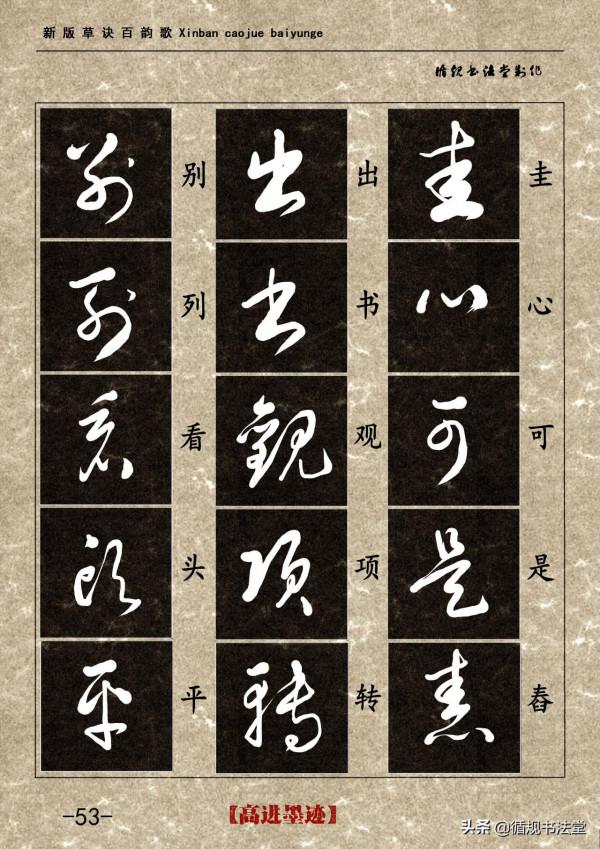 新版草诀百韵歌 Xinban caojue baiyunge
循规书法堂制作
圭心可是舂
出书观项转
别列看头平
-53-
【高进墨迹】
头条 @循规书法堂